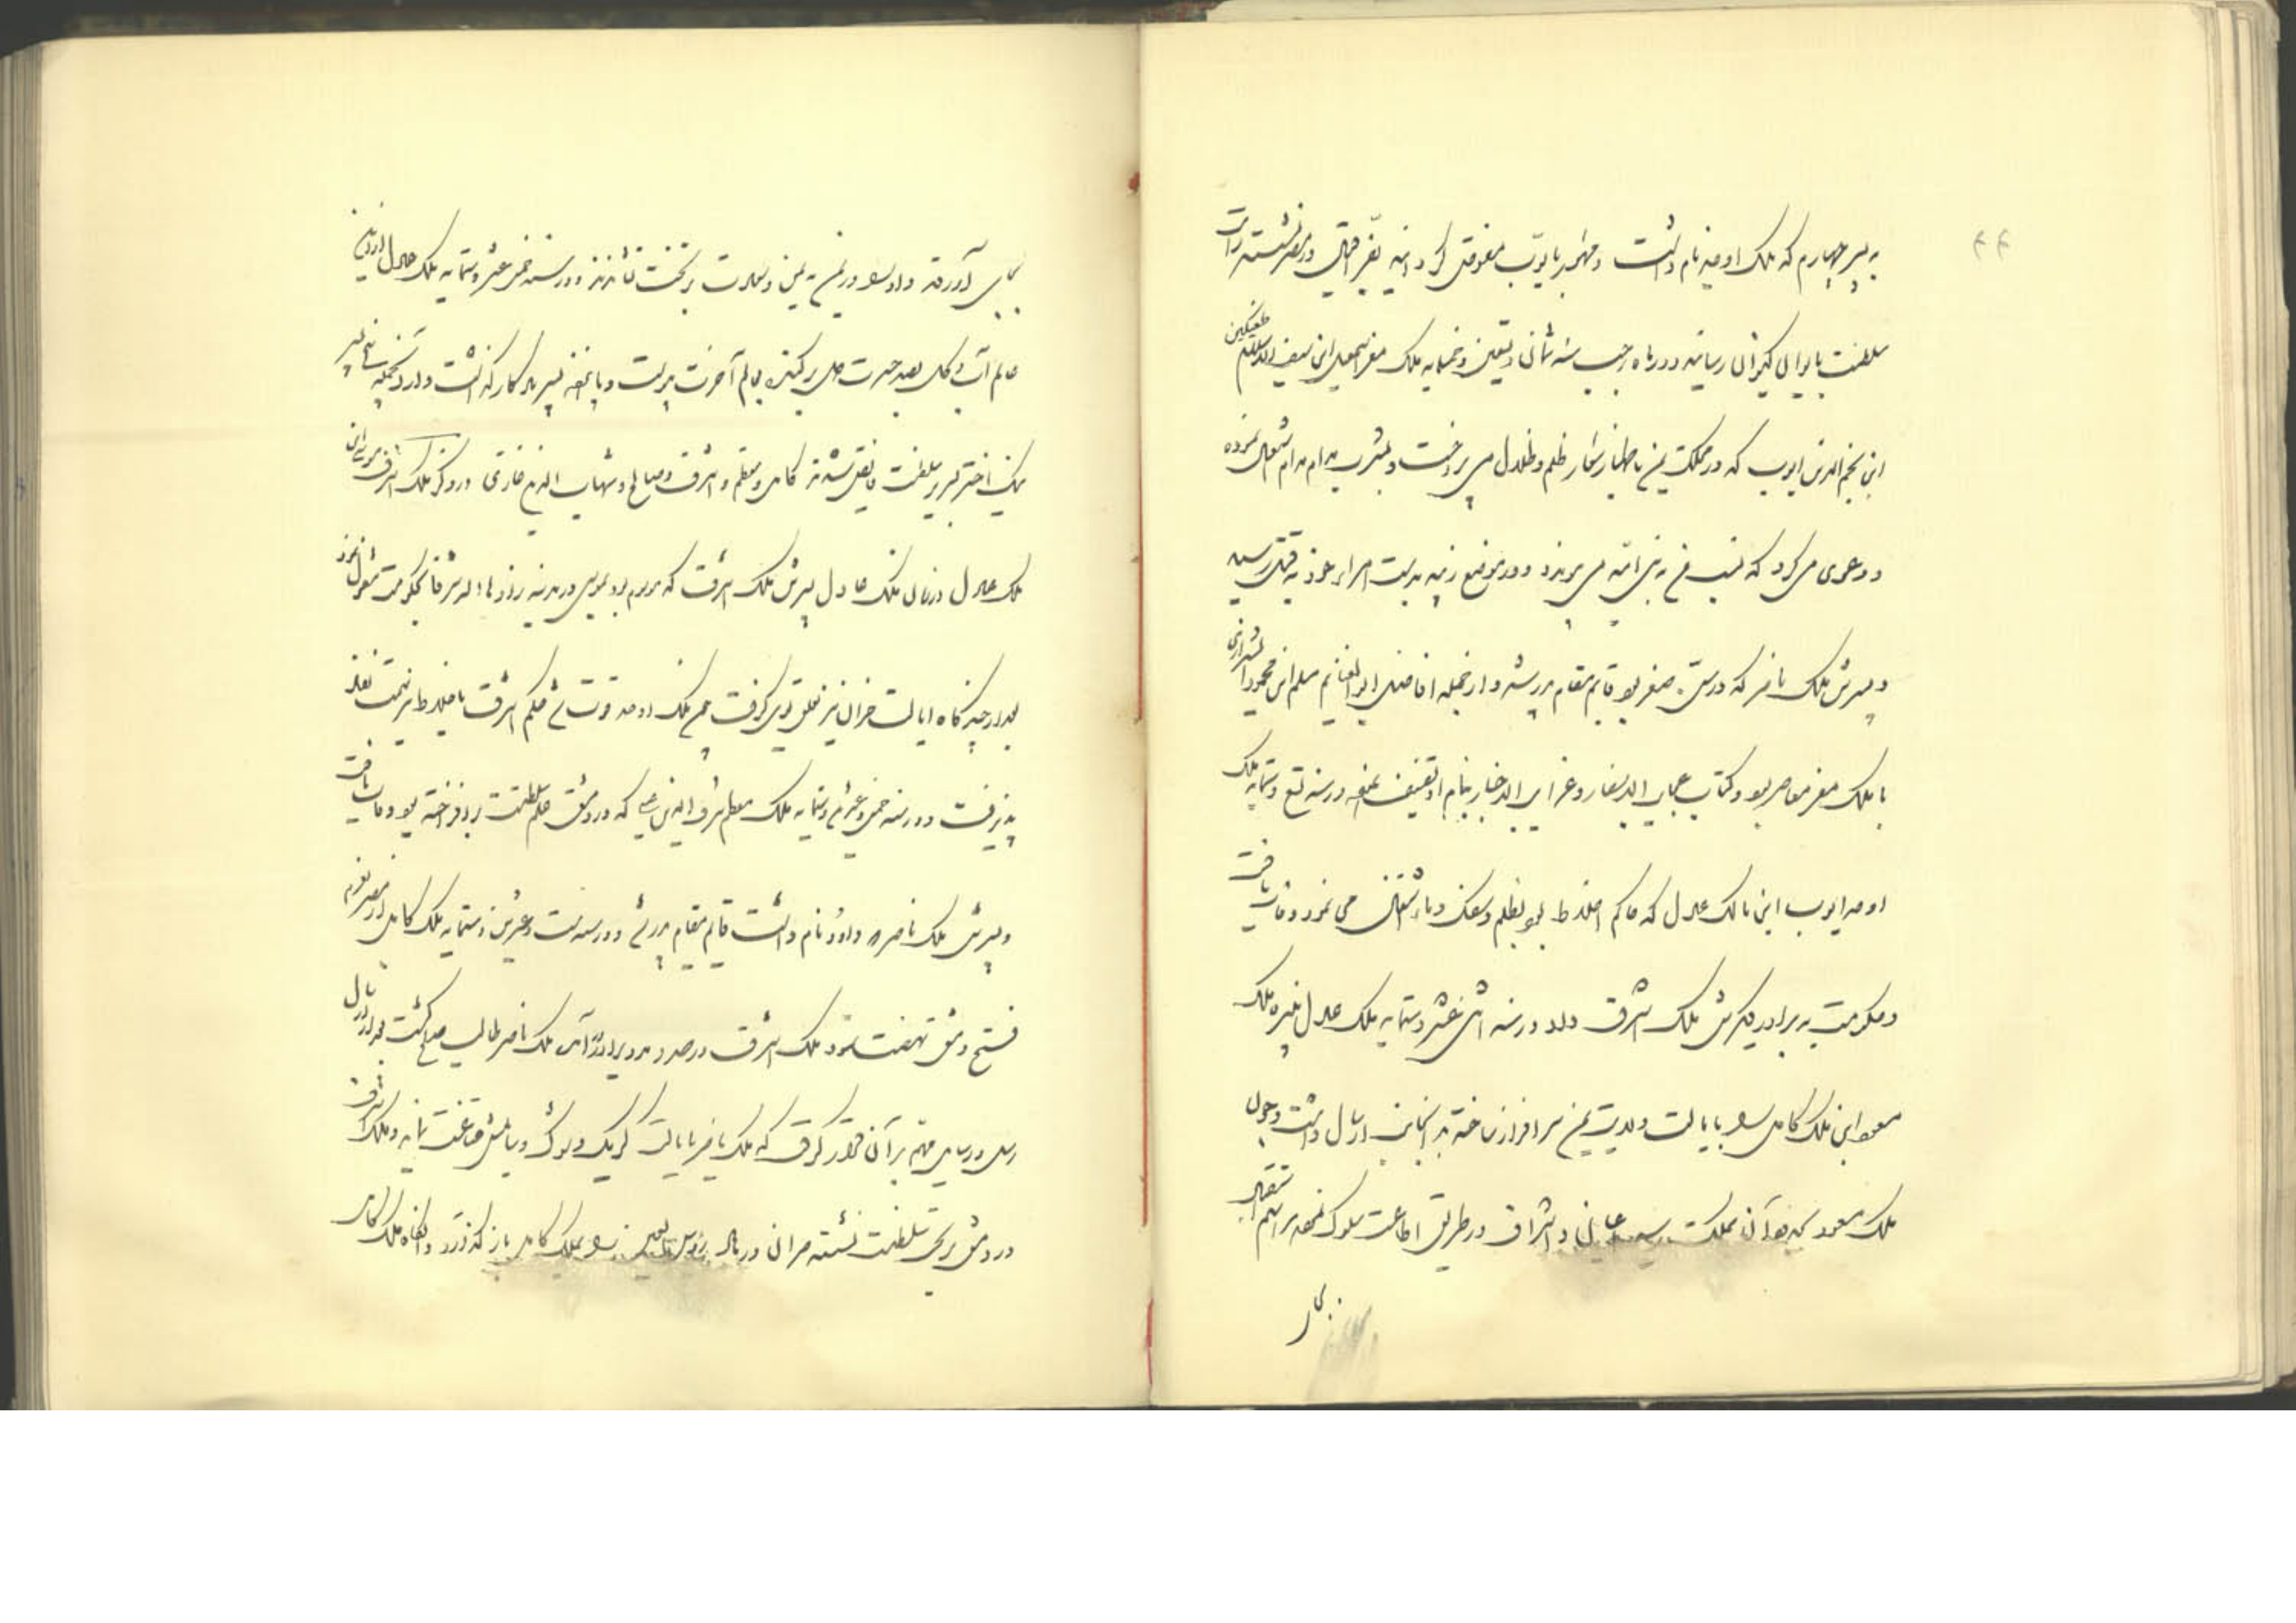 به پسر چهارم که ملک اوحد نام داشت و مهام جزیره بایوب مفوض گردانید بنفس خود در مصر نشسته رایت
سلطنت بایوان کیوان رسانید و در ماه رجب سنه ثمان و تسعین و خمسمایه ملک معز اسمعیل ابن سیف الاسلام طغتکین
ابن نجم الدین ایوب که در مملکت یمن باظهار شعار ظلم و ظلال می پرداخت و بشرب مدام مدام اشتغال نموده
و دعوی می کرد که نسب من به بنی امیه می پیوندد و در موضع زبید بدست امراء خود به قتل رسید
و پسرش ملک ناصر که در سن صغر بود قایم مقام پدر شد و از جمله افاضل ابو الغنایم مسلم ابن محمود الشیرازی
با ملک معز معاصر بود و کتاب عجایب الاسفار و غرایب الاخبار بنام او تصنیف نمود و در سنه تسع و ستمایه ملک
اوحد ایوب ابن مالک عادل که حاکم اخلاط بود بظلم و سفک دماء اشتغال می نمود وفات یافت
و حکومت به برادر دیگرش ملک اشرف داد و در سنه اثنی عشر و ستمایه ملک عادل نبیره ملک
مسعود ابن ملک کامل را بایالت ولایت یمن سرافراز ساخته بدانجانب ارسال داشت و چون
ملک مسعود بحدود آن مملکت رسید اعیان و اشراف در طریق اطاعت سلوک نموده مراسم استقبال
بجای
بجای آوردند و او را در یمن به یمن و سعادت بر تخت نشاندند و در سنه خمس عشر و ستمایه ملک عادل ازین
عالم آب و گل بصد حسرت دل بر کنده بعالم آخرت پیوست و پانزده پسر یادگار گذاشت و از آنجمله پنج پسر
نیک اختر بر سلطنت فایق شدند کامل و معظم و اشرف و صالح و شهاب الدین غازی در ذکر ملک اشرف موسی ابن
ملک عادل در زمان ملک عادل پسرش ملک اشرف که موسوم بود بموسی در مدینه رها و الرقا بحکومت مشغول بود
بعد از چندگاه ایالت حران نیز تعلق بوی گرفت چون ملک اوحد فوت شد حکم اشرف تا اخلاط سمت نفاذ
پذیرفت و در سنه خمس و عشرین و ستمایه ملک معظم شرف الدین عیسی که در دمشق علم سلطنت بر افراخته بود وفات یافت
و پسرش ملک ناصر که داود نام داشت قایم مقام پدر شد و در سنه ست و عشرین و ستمایه ملک کامل از مصر بعزم
فتح دمشق نهضت نمود ملک اشرف در صدد مدد برادر آمد ملک ناصر طالب صلح گشت بعد از ارسال
رسل و رسایل مهم بر آن قرار گرفت که ملک ناصر بایالت کرک و شوبک و نابلس قناعت نماید و ملک اشرف
در دمشق بر تخت سلطنت نشسته حران و رها و را بملک کامل باز گذارد و آنگاه ملک کامل